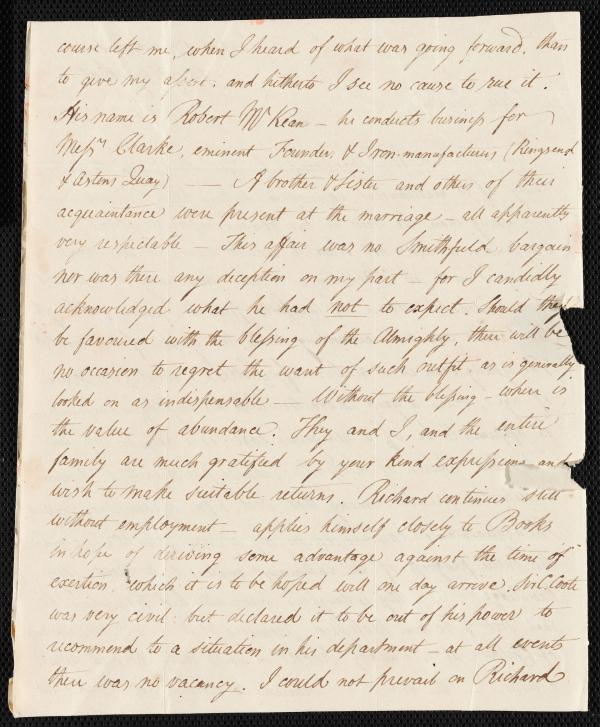 course left me, when I heard of what was going forward, than
to give my assent. and hitherto I see no cause to rue it.
His name is Robert McKean – he conducts business for
Messrs Clarke, eminent Founders & Iron-manufacturers (Ringsend
& Astons Quay) — A brother & Sister and others of their
acquaintance were present at the marriage – all apparently
very respectable – This affair was no Smithfield bargain
nor was there any deception on my part – for I candidly
acknowledged what he had not to expect. Should they
be favoured with the blessing of the Almighty, there will be
no occasion to regret the want of such outfit as is generally
looked on as indispensable — Without the blessing – where is
the value of abundance. They and I, and the entire
family are much gratified by your kind expressions and
wish to make suitable returns. Richard continues still
without employment – applies himself closely to Books
in hope of deriving some advantage against the time of
exertion which it is to be hoped will one day arrive. Sir C. Coote
was very civil but declared it to be out of his power to
recommend to a situation in his department – at all events
there was no vacancy. I could not prevail on Richard